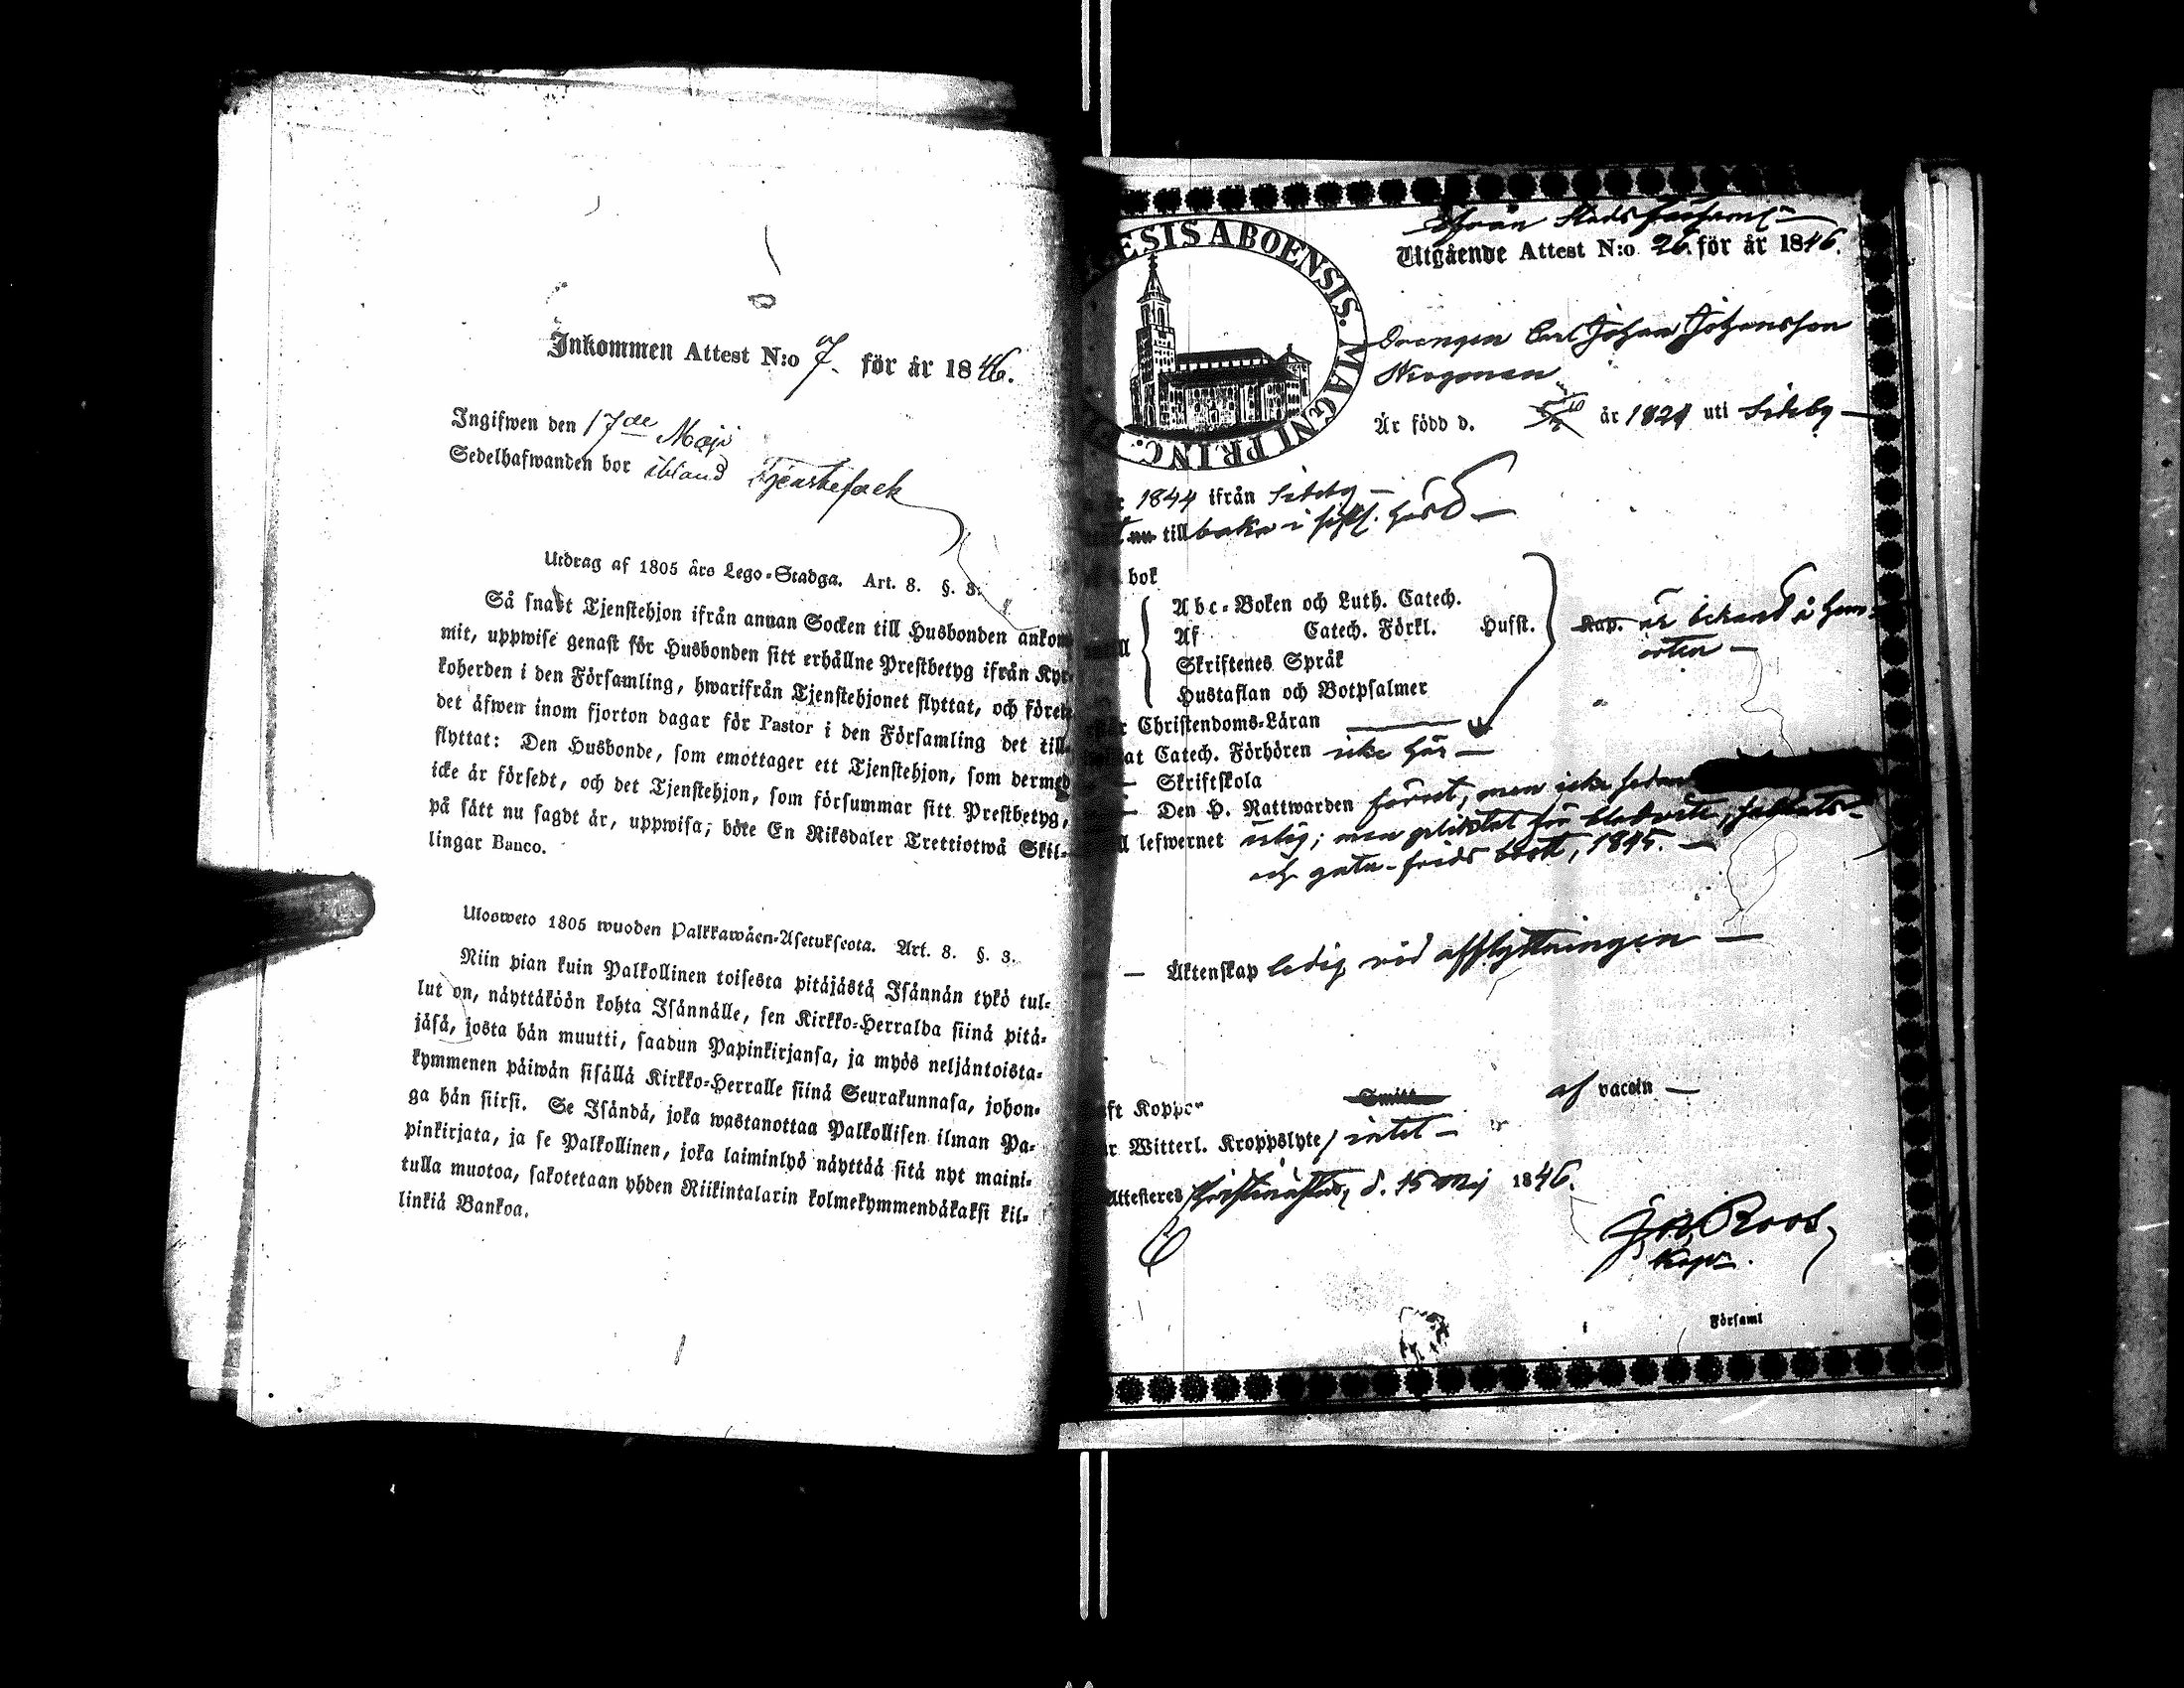 Inkommen Attest N:o 7. för år 1846.
Ingifwen den 17de Maji
Sedelhafwanden bor ibland Tjenstefolck
Utdrag af 1805 års Lego-Stadga. Art. 8. §. 3.
Så snart Tjenstehjon ifrån annan Socken till Husbonden ankom-
mit, uppwise genast för Husbonden sitt erhållne Prestbetyg ifrån Kyr-
koherden i den Församling, hwarifrån Tjenstehjonet flyttat, och förete
det äfwen inom fjorton dagar för Pastor i den Församling det till-
flyttat: Den Husbonde, som emottager ett Tjenstehjon, som dermed
icke är försedt, och det Tjenstehjon, som försummar sitt Prestbetyg,
på sätt nu sagdt är, uppwisa, böte En Riksdaler Trettiotwå Skil-
lingar Banco.
Uloosweto 1805 wuoden Palkkawäen-Asetuksesta. Art. 8. §. 3.
Niin pian kuin Palkollinen toisesta pitäjästä Isännän tykö tul-
lut on, näyttäköön kohta Isännälle, sen Kirkko-Herralda siinä pitä-
jäsä, josta hän muutti, saadun Papinkirjansa, ja myös neljäntoista-
kymmenen päiwän sisällä Kirkko-Herralle siinä Seurakunnasa, johon-
ga hän siirsi. Se Isändä, joka wastanottaa Palkollisen ilman Pa-
pinkirjata, ja se Palkollinen, joka laiminlyö näyttää sitä nyt maini-
tulla muotoa, sakotetaan yhden Riikintalarin kolmekymmendäkaksi kil-
linkiä Bankoa.
ESIS ABOENSIS. MAGNI PRINC.
ifrån Stads församl
Utgående Attest N:o 26. för år 1846.
Drengen Carl Johan Johansson
Är född d. år 1824 uti Sideby
1844 ifrån Sideby
nu tillbaka i höst
bok
Abc-Boken och Luth. Catech.
Af Catech. Förkl. Hufst. Kap. är bekand å hem-
orten
Skriftenes Språk
Hustaflan och Botpsalmer
Christendoms-Läran
at Catech. Förhören icke här
Skriftskola
Den H. Nattwarden förut, men icke sedan
lefwernet men pliktat för blodvite, sabbats-
och gatu-frids brott, 1845.
Äktenskap ledig vid afflyttningen
aft Koppor af vaccin
Witterl. Kroppslyte intet
Attesteres Christinæstad, d. 15 Maj 1846.
Roos
Kapn.
Församl